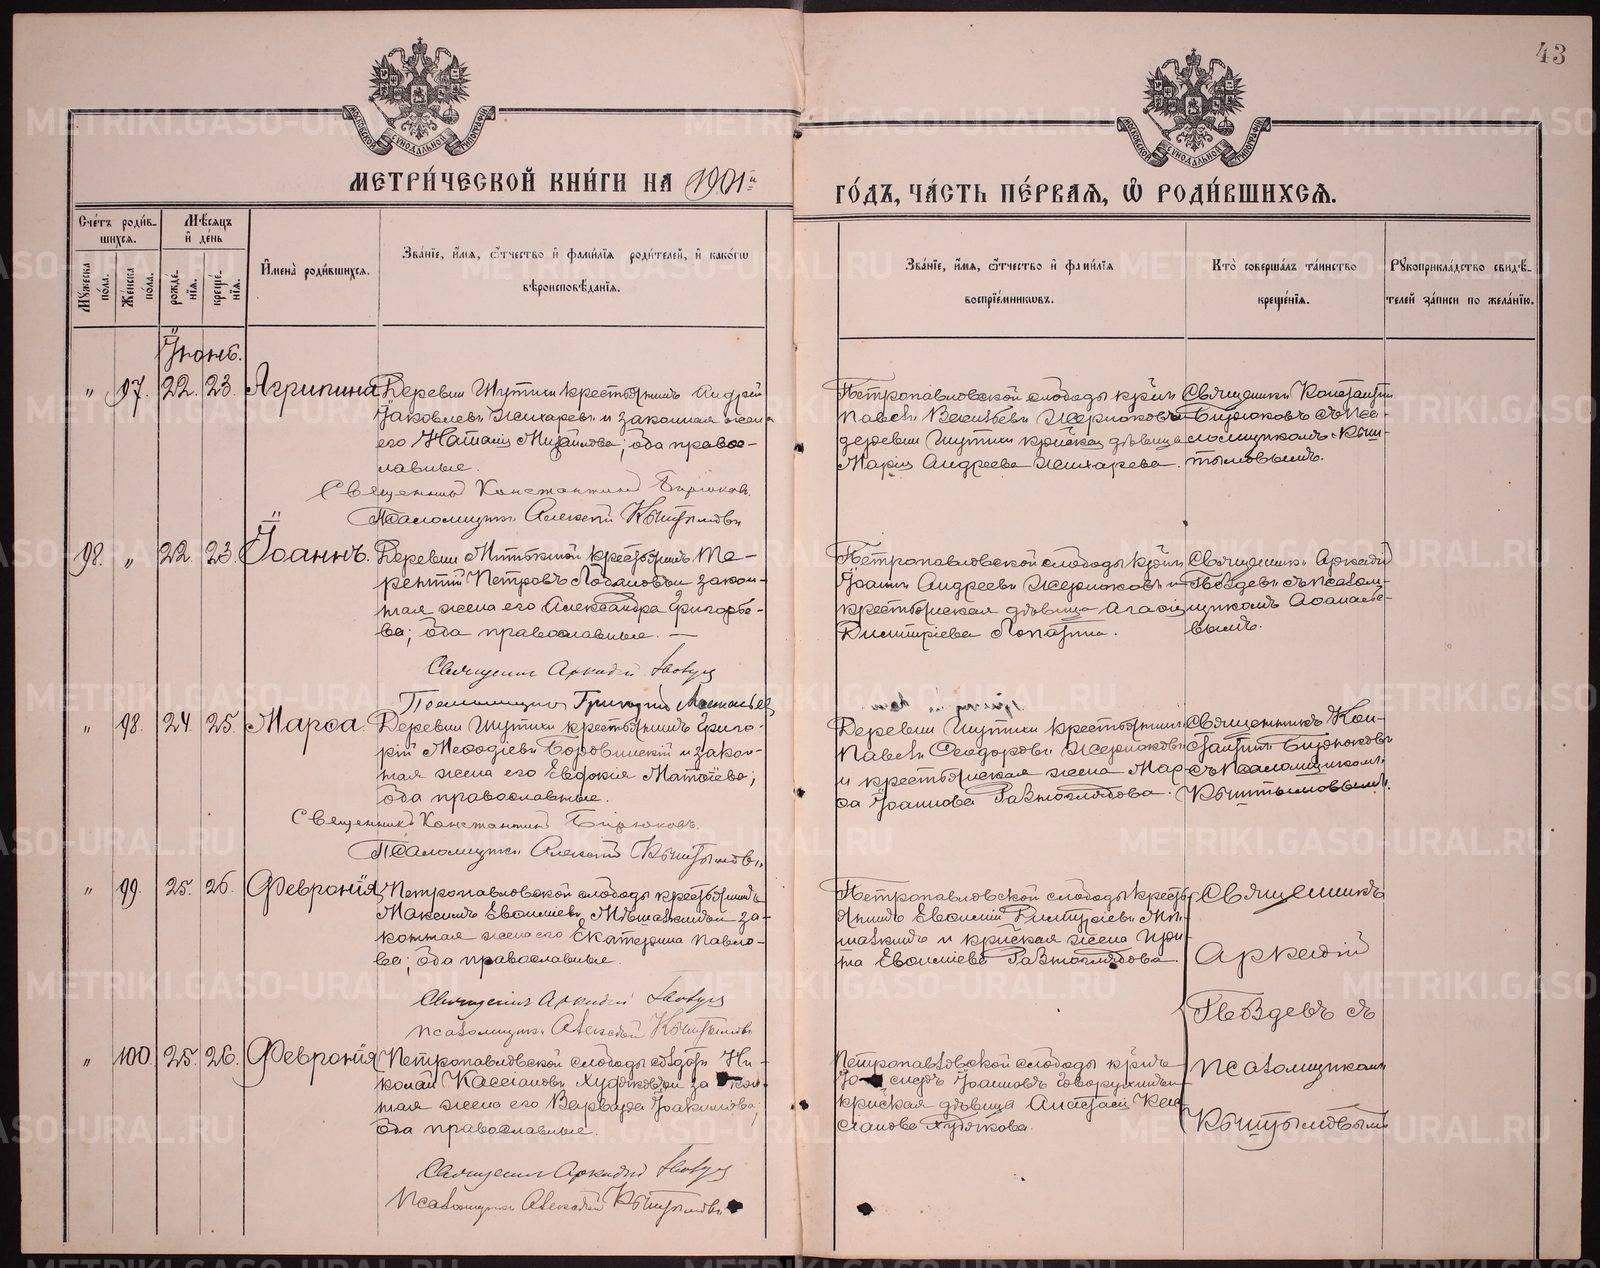 43
МОСКОВСКОЙ СѴНОДАЛЬНОЙ ТИПОГРАФІИ
МОСКОВСКОЙ СѴНОДАЛЬНОЙ ТИПОГРАФІИ
МЕТРИ́ЧЕСКОЙ КНИ́ГИ НА 1901й
ГО́ДЪ, ЧА́СТЬ ПЕ́РВАѦ, Ѽ РОДИ́ВШИХСѦ.
Сче́тъ роди́вшихсѧ.
Мꙋ́жеска по́ла.
Же́нска по́ла.
Мѣ́сѧцъ и҆ де́нь
рожде́нїѧ.
креще́нїѧ.
И҆мена̀ роди́вшихсѧ.
Зва́нїе, и҆́мѧ, ѻ҆́тчество и҆ фами́лїѧ роди́телей, и҆ како́гѡ
вѣроисповѣ́данїѧ.
Зва́нїе, и҆́мѧ, ѻ҆́тчество и҆ фами́лїѧ
воспрїе́мниковъ.
Кто̀ соверша́лъ та́инство
креще́нїѧ.
Рꙋкоприкла́дство свидѣ́-
телей за́писи по жела́нїю.
Іюнь.
" 97. 22. 23. Агрипина
Деревни Шутихи крестьянинъ Андрей
Іаковлевъ Жихаревъ и законная жена
его Наталія Михайлова; оба право-
славные.
Священникъ Константинъ Бирюковъ.
Псаломщикъ Алексѣй Кыштымовъ
Петропавловской слободы крнъ
Павелъ Васильевъ Жерноковъ и
деревни Шутихи крнская дѣвица
Марія Андреева Жихарева.
Священникъ Константинъ
Бирюковъ съ пса-
ломщикомъ Кыш-
тымовымъ.
98. " 22 23. Іоаннъ.
Деревни крестьянинъ Те-
рентій Петровъ Лобановъ и закон-
ная жена его Александра Григорье-
ва; оба православные. —
Священникъ Аркадій
Псаломщикъ Григорій
Петропавловской слободы крнъ
Іоаннъ Андреевъ Жерноковъ и
крестьянская дѣвица Агафія
Димитріева Лопатина.
Священникъ Аркадій
Гвоздевъ съ псалом-
щикомъ Афанасье-
вымъ.
" 98. 24 25. Марѳа.
Деревни Шутихи крестьянинъ Григо-
рій Меѳодіевъ и закон-
ная жена его Евдокія Матѳіева;
оба православные.
Священникъ Константинъ Бирюковъ.
Псаломщикъ Алексѣй Кыштымовъ.
Деревни Шутихи крестьянинъ
Павелъ Ѳеодоровъ Жерноковъ
и крестьянская жена Мар-
ѳа Іоаннова Равноглядова.
Священникъ Кон-
стантинъ Бирюковъ
съ псаломщикомъ
Кыштымовымъ.
" 99. 25. 26. Февронія
Петропавловской слободы крестьянинъ
Максимъ Евѳиміевъ и за-
конная жена его Екатерина Павло-
ва; оба православные.
Священникъ Аркадій
псаломщикъ Алексѣй Кыштымовъ
Петропавловской слободы кресть-
янинъ Евѳимій Димитріевъ
и крнская жена Ири-
на Евѳиміева Равноглядова.
Священникъ
Аркадій
Гвоздевъ съ
псаломщикомъ
Кыштымовымъ
" 100. 25. 26. Февронія
Петропавловской слободы солдатъ Ни-
колай Кассіановъ Худяковъ и закон-
ная жена его Варвара Іоакимова;
оба православные.
Священникъ Аркадій
Псаломщикъ Алексѣй Кыштымовъ
Петропавловской слободы крнъ
Іоанновъ Говорухинъ и
крнская дѣвица Анастасія Кас-
сіанова Худякова.